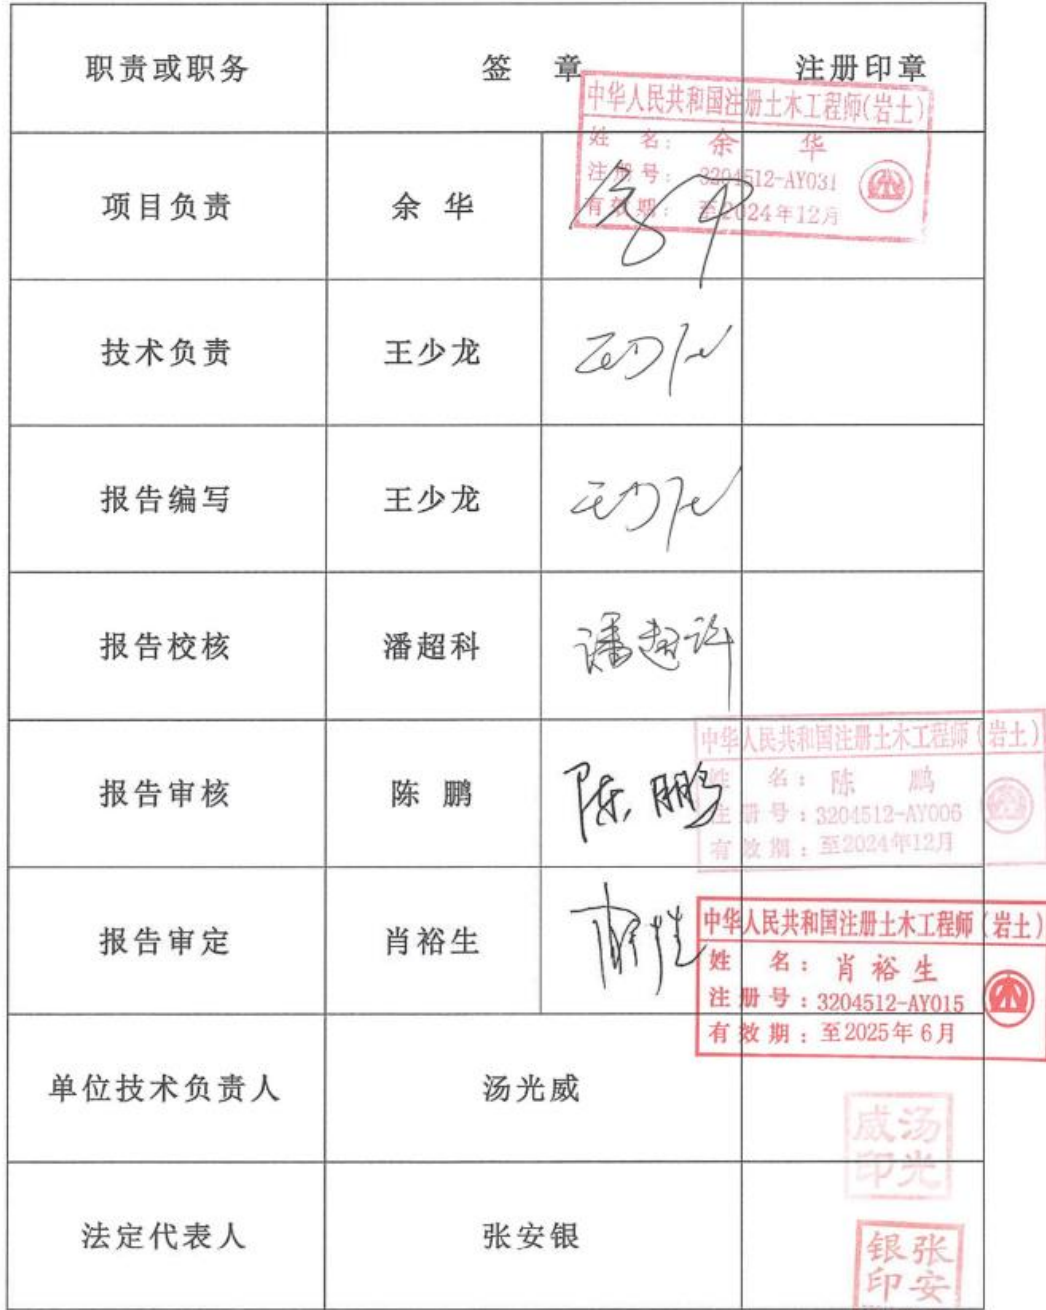 职责或职务 签 章 注册印章
中华人民共和国注册土木工程师(岩土)
姓 名: 余 华
注册号: 3204512-AY031
有效期: 至2024年12月
项目负责 余 华
技术负责 王少龙
报告编写 王少龙
报告校核 潘超科
中华人民共和国注册土木工程师(岩土)
姓 名: 陈 鹏
注册号: 3204512-AY006
有效期: 至2024年12月
报告审核 陈 鹏 陈鹏
中华人民共和国注册土木工程师(岩土)
姓 名: 肖裕生
注册号: 3204512-AY015
有效期: 至2025年6月
报告审定 肖裕生
单位技术负责人 汤光威
汤光威印
法定代表人 张安银
张安银印